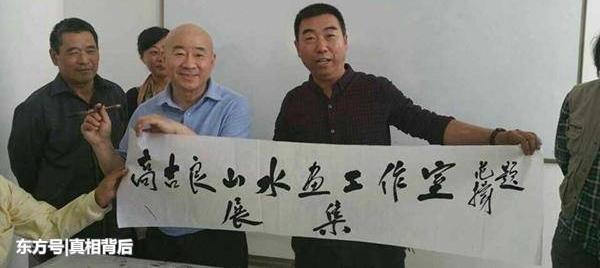 高古良山水画工作室 题
展集
东方号|真相背后